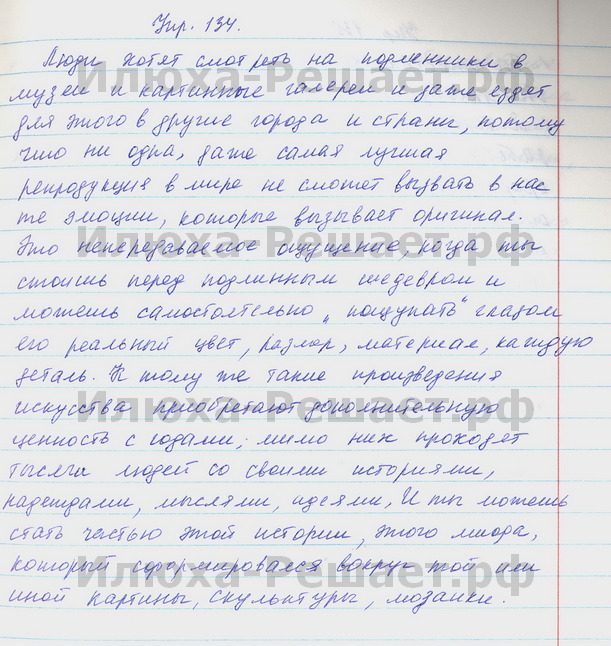 Упр. 134.
Люди хотят смотреть на подленники в
музеи и картинные галереи и даже ездет
для этого в другие города и страны, потому
что ни одна, даже самая лучшая
репродукция в мире не сможет вызвать в нас
те эмоции, которые вызывает оригинал.
Это непередаваемое ощущение, когда ты
стоишь перед подлинным шедевром и
можешь самостоятельно „пощупать" глазом
его реальный цвет, размер, материал, каждую
деталь. К тому же такие произведения
искусства приобретают дополнительную
ценность с годами, мимо них проходят
тысячи людей со своими историями,
надеждами, мыслями, идеями. И ты можешь
стать частью этой истории, этого мира,
который сформировался вокруг той или
иной картины, скульптуры, мозаики.
Илюха-Решает.рф
Илюха-Решает.рф
Илюха-Решает.рф
Илюха-Решает.рф